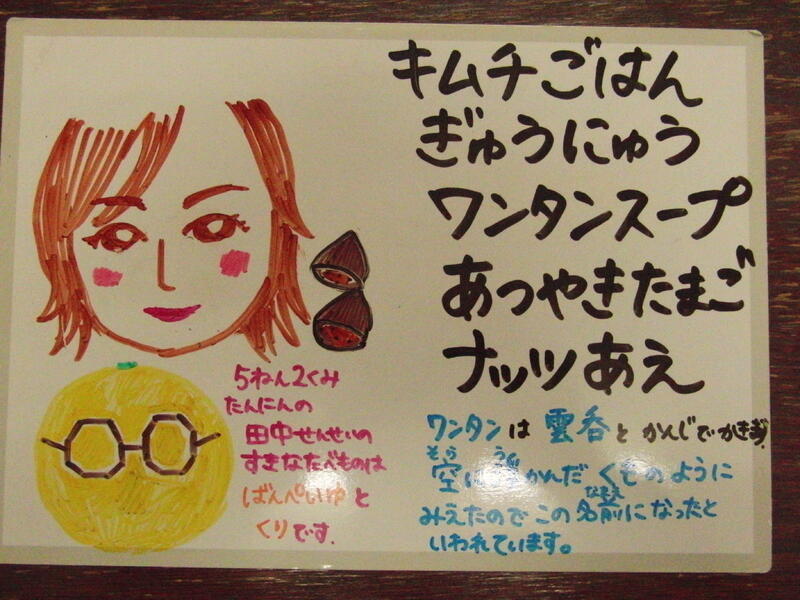 キムチごはん
ぎゅうにゅう
ワンタンスープ
あつやきたまご
ナッツあえ
5ねん2くみ
たんにんの
田中せんせいの
すきなたべものは
ばんぺいゆと
くりです.
ワンタンは 雲呑と かんじでかきます.
そら う
空に かんだ くものように
なまえ
みえたので この名前になったと
いわれています。